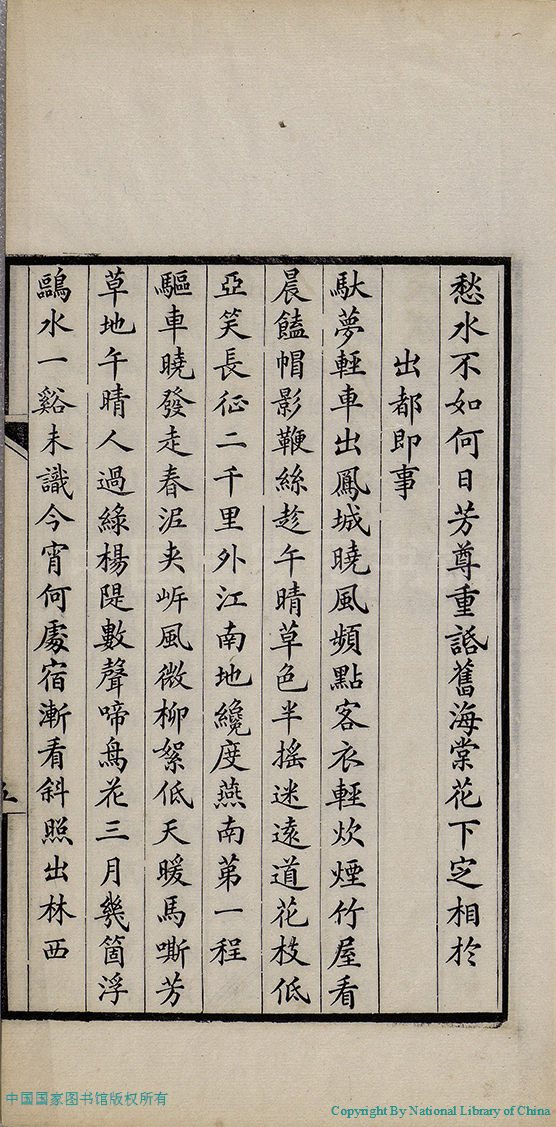 愁水不如何日芳尊重話舊海棠花下定相於
出都即事
馱夢輕車出鳳城曉風頻點客衣輕炊煙竹屋看
晨饁帽影鞭絲趁午晴草色半搖迷遠道花枝低
亞笑長征二千里外江南地纔度燕南第一程
驅車曉發走春泥夾岸風微柳絮低天暖馬嘶芳
草地午晴人過綠楊隄數聲啼鳥花三月幾箇浮
鷗水一谿未識今宵何處宿漸看斜照出林西
中国国家图书馆版权所有
Copyright By National Library of China